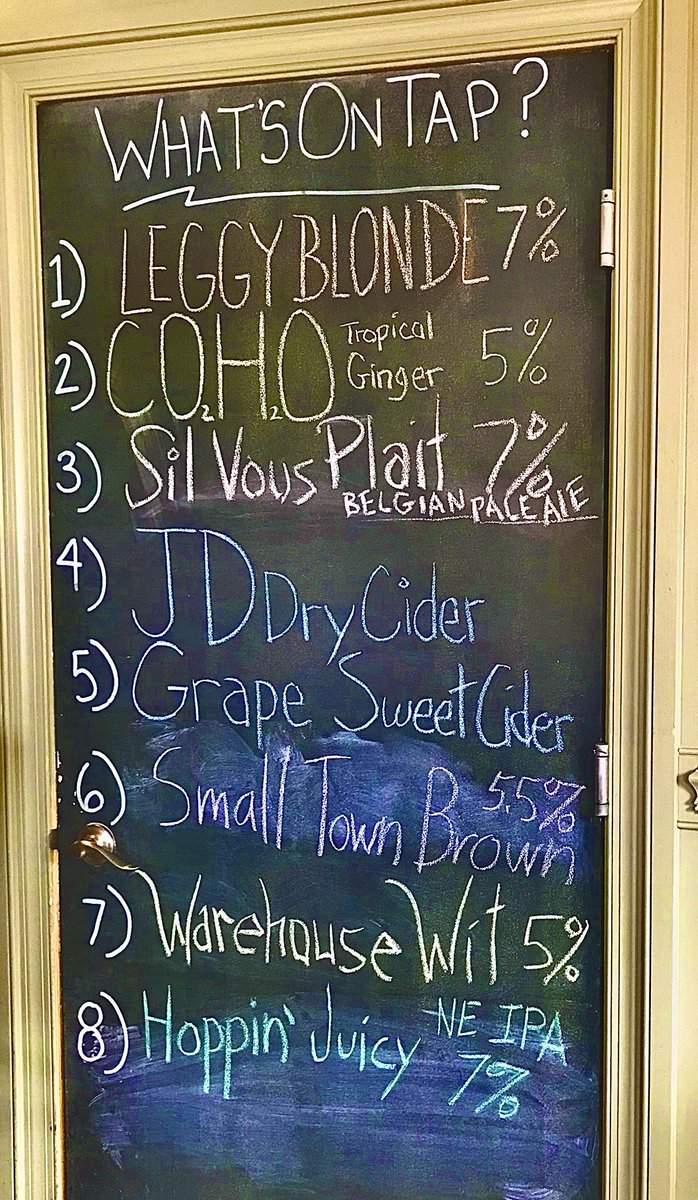 WHAT'S ON TAP?
1) LEGGY BLONDE 7%
2) CO₂H₂O Tropical Ginger 5%
3) Sil Vous Plait 7%
BELGIAN PALE ALE
4) JD Dry Cider
5) Grape Sweet Cider
6) Small Town Brown 5.5%
7) Warehouse Wit 5%
8) Hoppin' Juicy NE IPA
7%